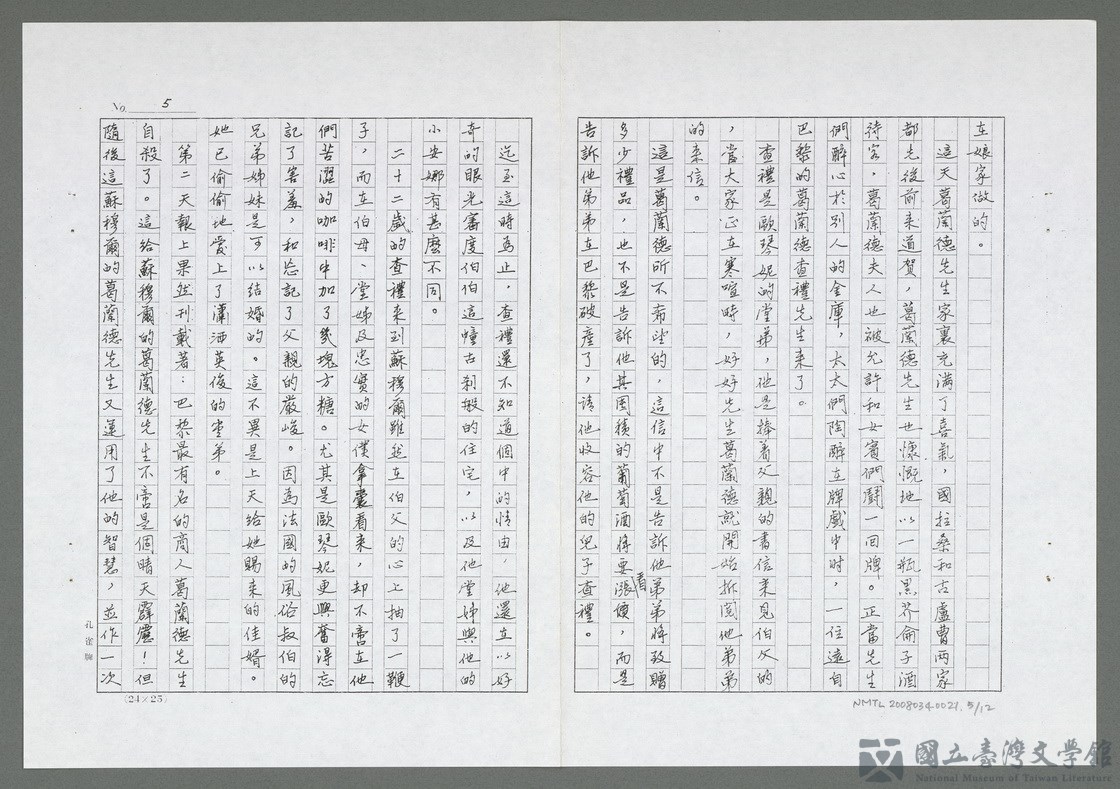 在娘家做的。
這天葛蘭德先生家裏充滿了喜氣，國拉桑和古盧曹兩家
都先後前來道賀，葛蘭德先生也慷慨地以一瓶黑芥侖子酒
待客，葛蘭德夫人也被允許和女賓們鬪一回牌。正當先生
們醉心於別人的金庫，太太們陶醉在牌戲中時，一位遠自
巴黎的葛蘭德查禮先生來了。
查禮是歐琴妮的堂弟，他是捧着父親的書信來見伯父的
，當大家正在寒喧時，好好先生葛蘭德就開始拆閱他弟弟
的來信。
這是葛蘭德所不希望的，這信中不是告訴他弟弟將致贈
多少禮品，也不是告訴他其囤積的葡萄酒將要漲價看，而是
告訴他弟弟在巴黎破產了，請他收容他的兒子查禮。
NMTL 2008034.0021. 5/12
No. 5
迄至這時為止，查禮還不知道個中的情由，他還在以好
奇的眼光審度伯伯這幢古刹般的住宅，以及他堂姊與他的
小安娜有甚麼不同。
二十二歲的查禮來到蘇穆爾雖然在伯父的心上抽了一鞭
子，而在伯母、堂姊及忠實的女僕拿儂看來，却不啻在他
們苦澀的咖啡中加了幾塊方糖。尤其是歐琴妮更興奮得忘
記了害羞，和忘記了父親的嚴峻。因為法國的風俗叔伯的
兄弟姊妹是可以結婚的。這不異是上天給她賜來的佳婿。
她已偷偷地愛上了瀟洒英俊的堂弟。
第二天報上果然刊載著：巴黎最有名的商人葛蘭德先生
自殺了。這給蘇穆爾的葛蘭德先生不啻是個晴天霹靂！但
隨後這蘇穆爾的葛蘭德先生又運用了他的智慧，並作一次
孔雀牌
(24×25)
國立臺灣文學館
National Museum of Taiwan Literature